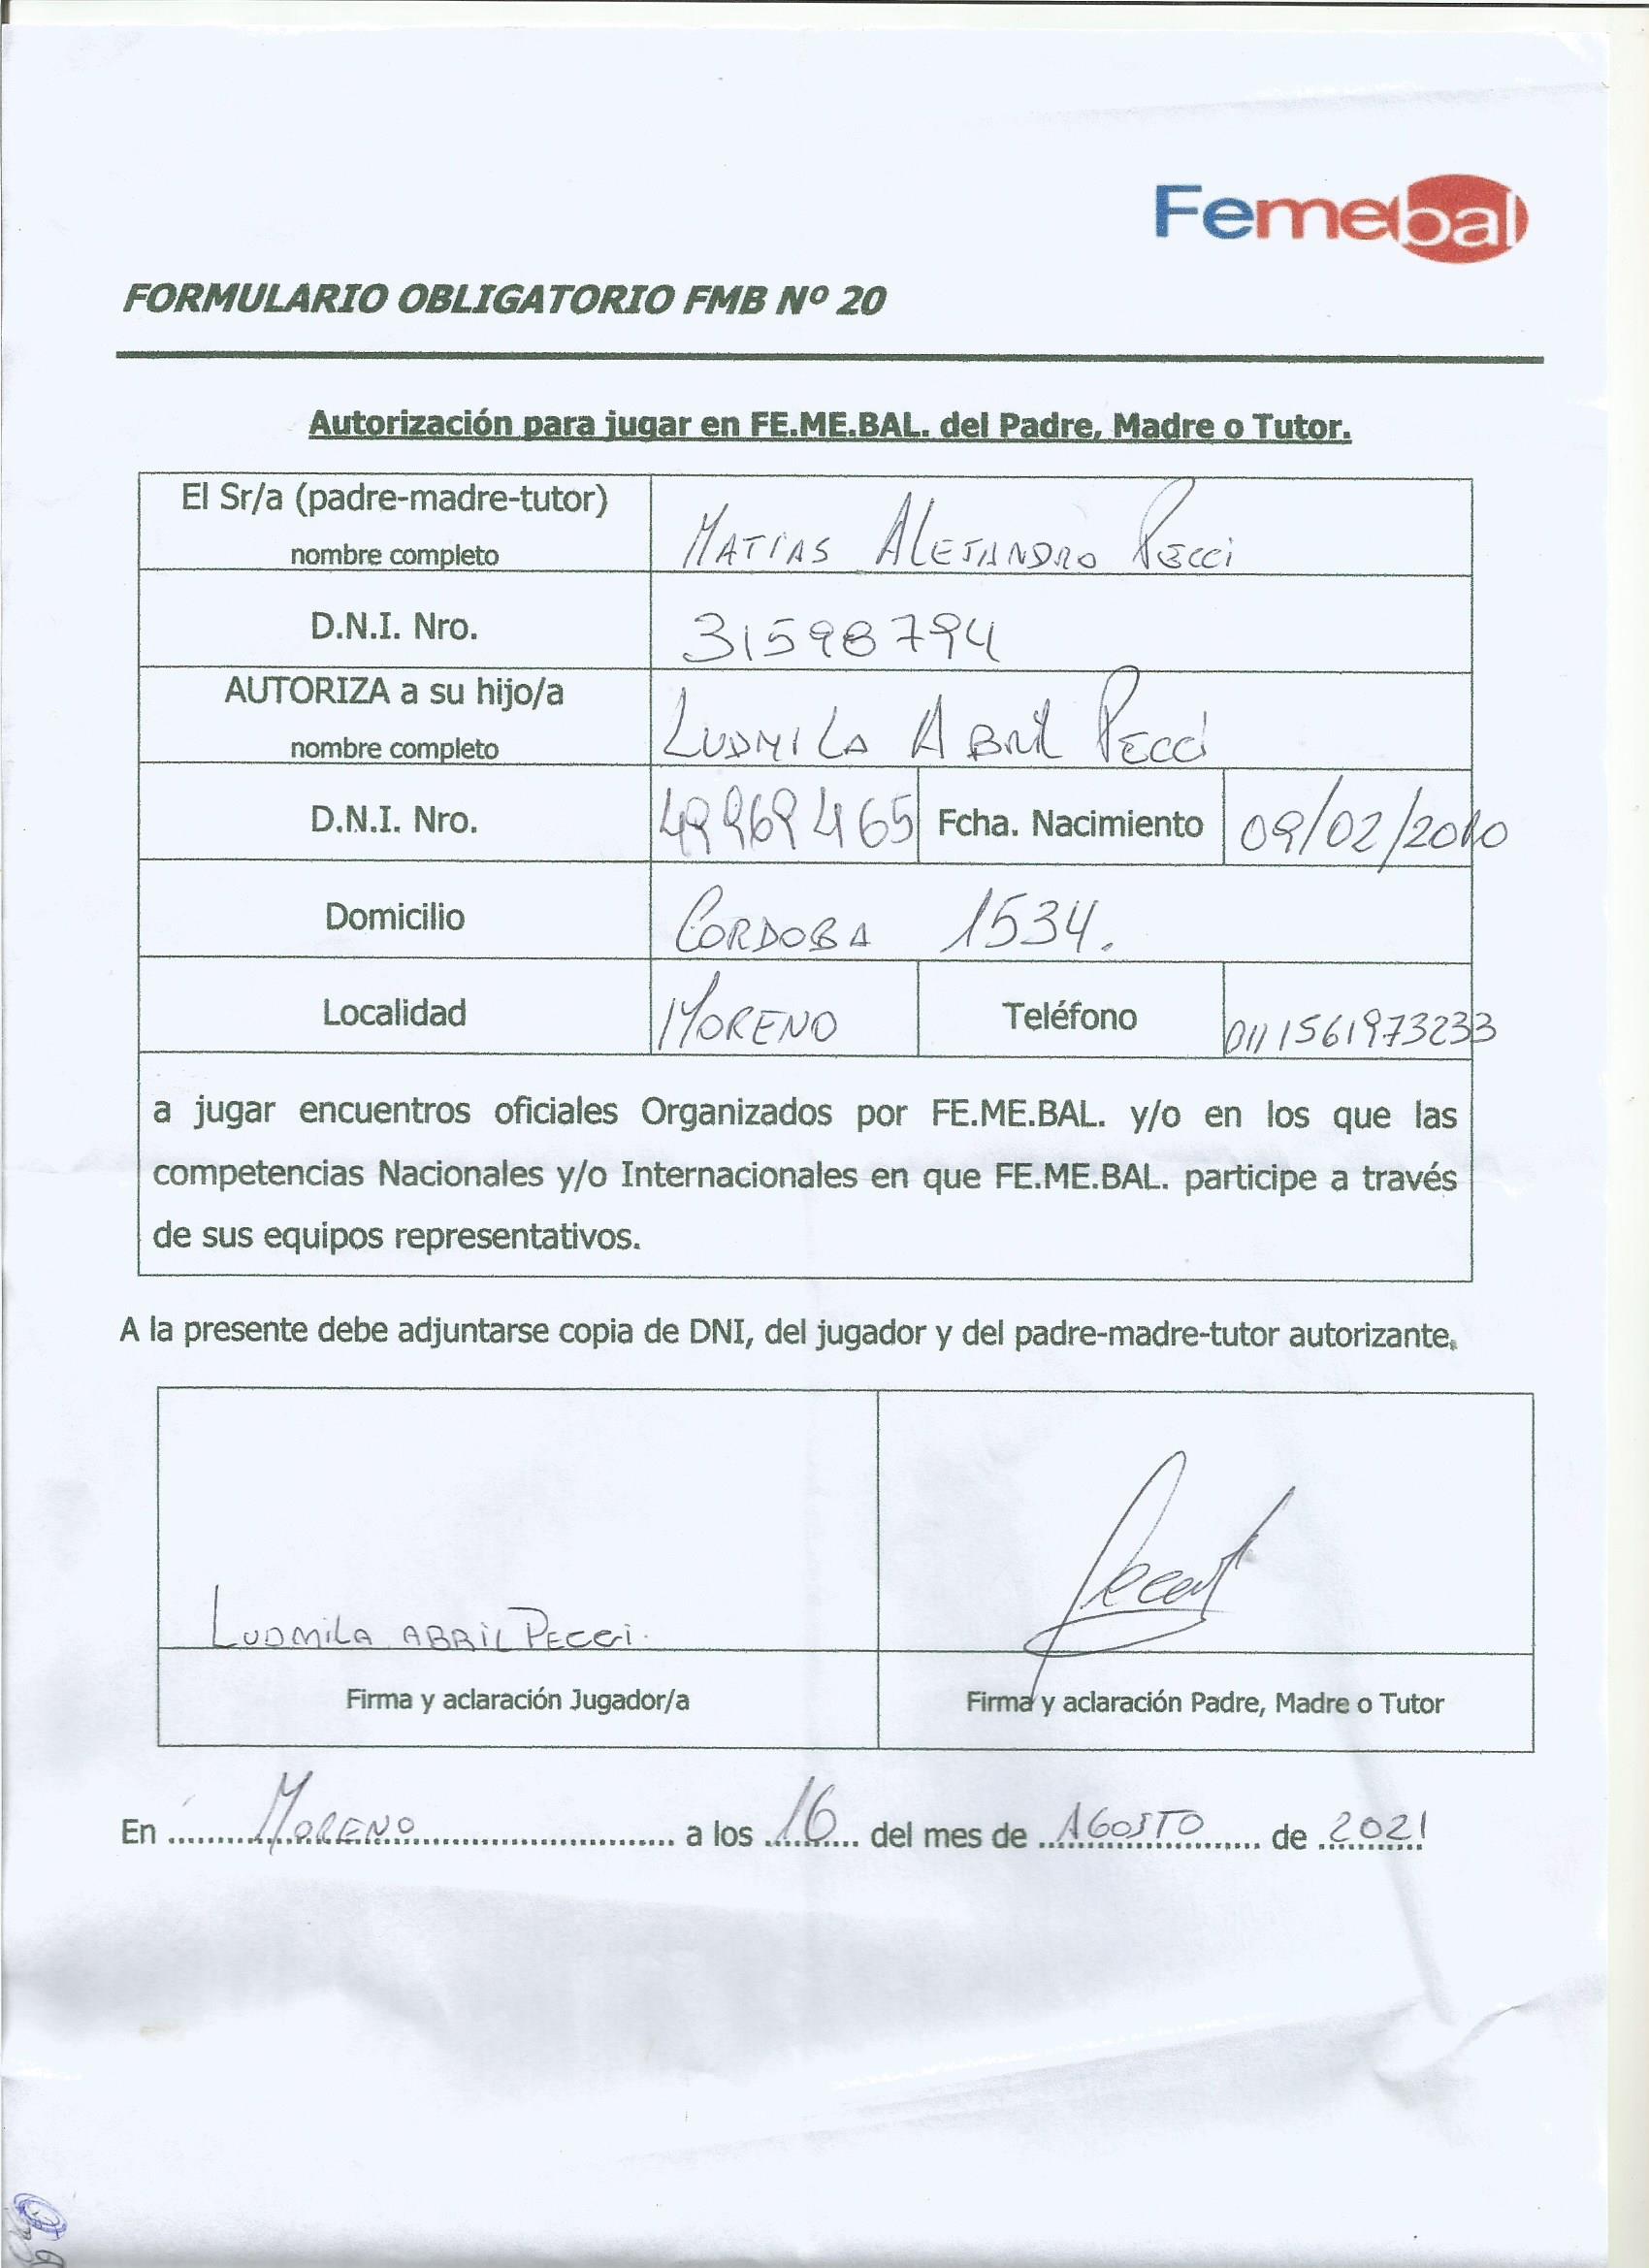 Femebal
FORMULARIO OBLIGATORIO FMB Nº 20
Autorización para jugar en FE.ME.BAL. del Padre, Madre o Tutor.
El Sr/a (padre-madre-tutor)
nombre completo
MATIAS ALEJANDRO PECCI
D.N.I. Nro.
31598794
AUTORIZA a su hijo/a
nombre completo
LUDMILA ABRIL PECCI
D.N.I. Nro.
49969465
Fcha. Nacimiento
09/02/2010
Domicilio
CORDOBA 1534.
Localidad
MORENO
Teléfono
011 1561973233
a jugar encuentros oficiales Organizados por FE.ME.BAL. y/o en los que las
competencias Nacionales y/o Internacionales en que FE.ME.BAL. participe a través
de sus equipos representativos.
A la presente debe adjuntarse copia de DNI, del jugador y del padre-madre-tutor autorizante.
LUDMILA ABRIL PECCI.
Firma y aclaración Jugador/a
Firma y aclaración Padre, Madre o Tutor
En MORENO a los 16 del mes de AGOSTO de 2021